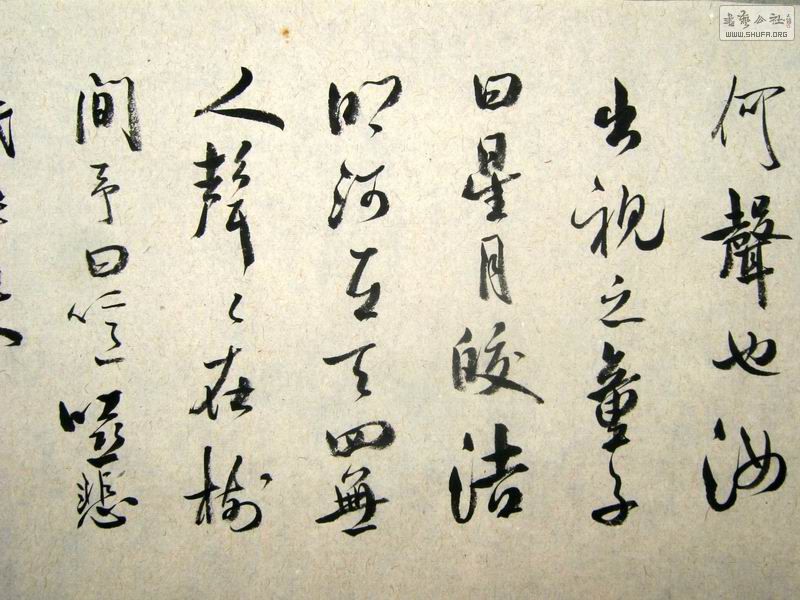 何聲也汝
出視之童子
曰星月皎潔
明河在天四無
人聲々在樹
間予曰噫嘻悲
WWW.SHUFA.ORG